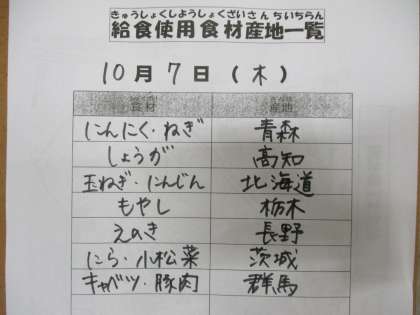 きゅうしょくしようしょくざいさんちいちらん
給食使用食材産地一覧
10月7日(木)
食材 産地
にんにく・ねぎ 青森
しょうが 高知
玉ねぎ・にんじん 北海道
もやし 栃木
えのき 長野
にら・小松菜 茨城
キャベツ・豚肉 群馬